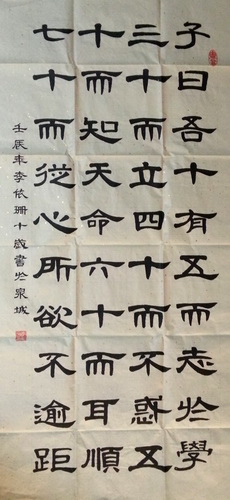 子曰吾十有五而志於學
三十而立四十而不惑五
十而知天命六十而耳順
七十而從心所欲不逾距
壬辰年李依珊十歲書於泉城